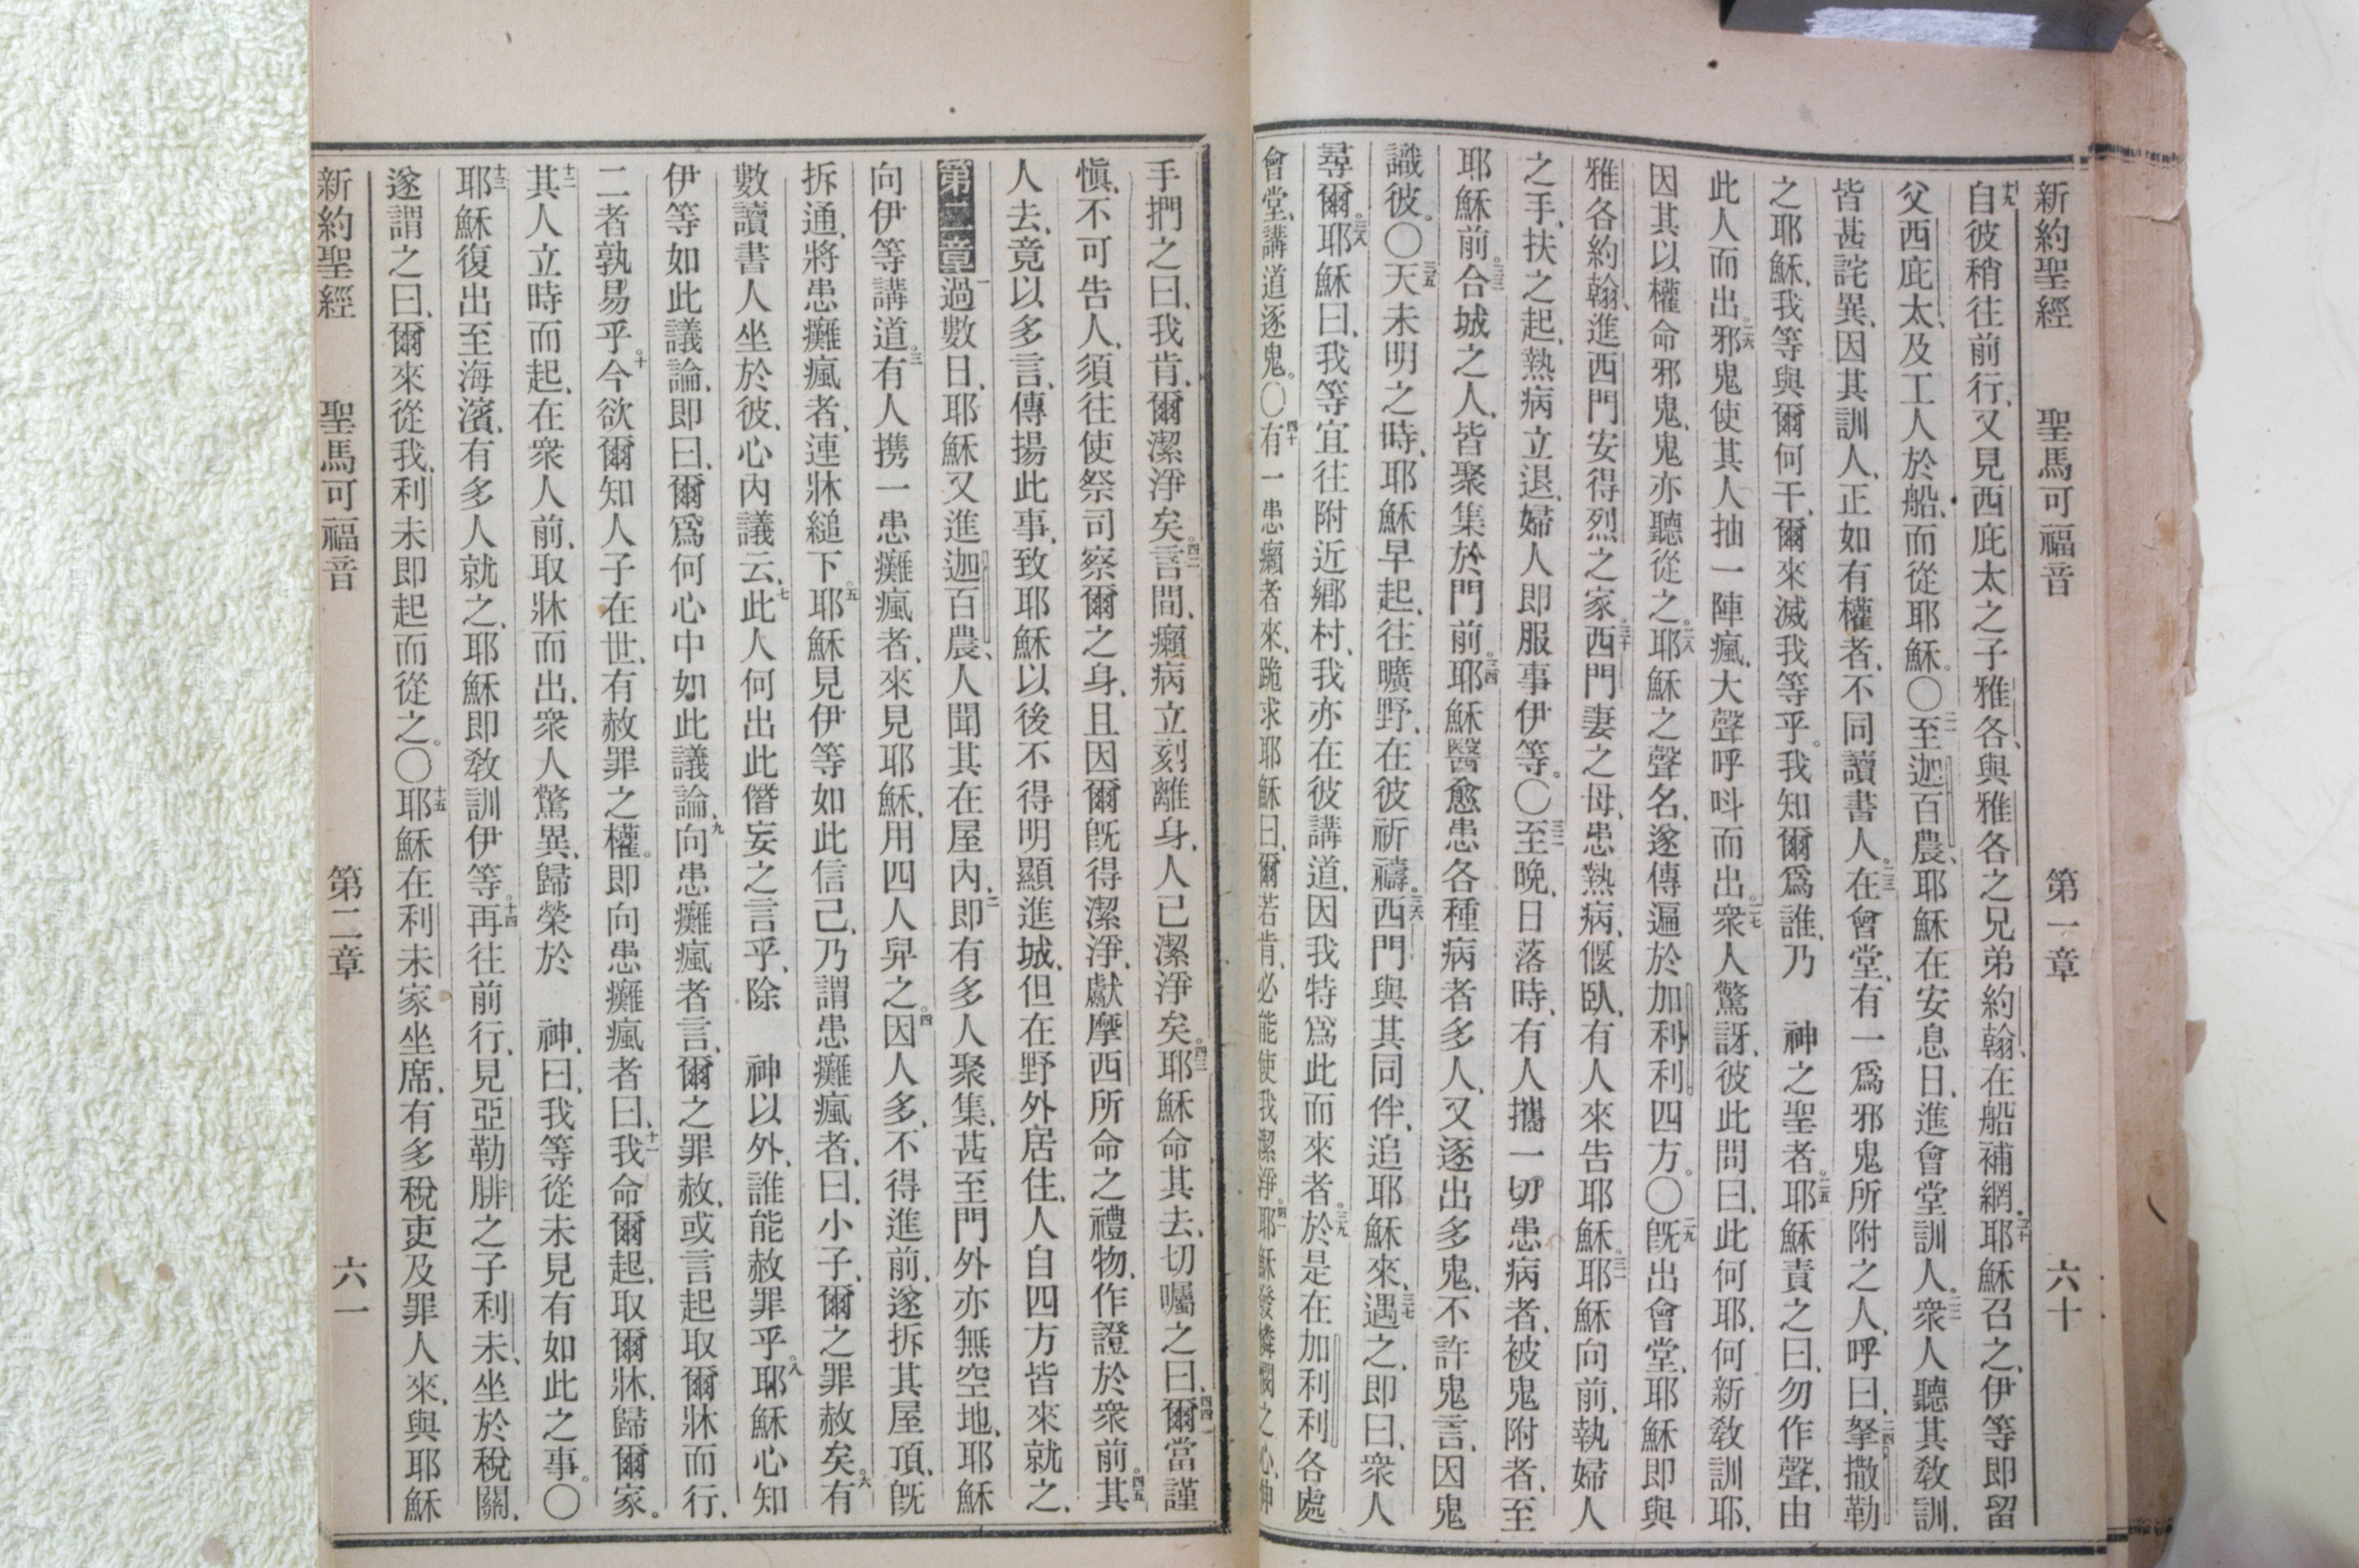 新約聖經 聖馬可福音 第一章 六十
十九自彼稍往前行、又見西庇太之子雅各、與雅各之兄弟約翰、在船補網、二十耶穌召之、伊等即留
父西庇太、及工人於船、而從耶穌。〇二一至迦百農、耶穌在安息日、進會堂訓人。二二衆人聽其敎訓、
皆甚詫異、因其訓人、正如有權者、不同讀書人。二三在會堂、有一爲邪鬼所附之人、呼曰、二四拏撒勒
之耶穌、我等與爾何干、爾來滅我等乎。我知爾爲誰、乃 神之聖者。二五耶穌責之曰、勿作聲、由
此人而出。二六邪鬼使其人抽一陣瘋、大聲呼呌而出。二七衆人驚訝、彼此問曰、此何耶、何新敎訓耶、
因其以權命邪鬼、鬼亦聽從之。二八耶穌之聲名、遂傳遍於加利利四方。〇二九旣出會堂、耶穌即與
雅各約翰、進西門安得烈之家。三十西門妻之母、患熱病、偃臥、有人來告耶穌。三一耶穌向前、執婦人
之手、扶之起、熱病立退、婦人即服事伊等。〇三二至晚、日落時、有人攜一切患病者、被鬼附者、至
耶穌前。三三合城之人、皆聚集於門前。三四耶穌醫愈患各種病者多人、又逐出多鬼、不許鬼言、因鬼
識彼。〇三五天未明之時、耶穌早起、往曠野、在彼祈禱。三六西門與其同伴、追耶穌來、三七遇之、即曰、衆人
尋爾。三八耶穌曰、我等宜往附近鄉村、我亦在彼講道、因我特爲此而來者。三九於是在加利利各處
會堂、講道逐鬼。〇四十有一患癩者來、跪求耶穌曰、爾若肯、必能使我潔淨。四一耶穌發憐憫之心、伸
手捫之曰、我肯、爾潔淨矣。四二言間、癩病立刻離身、人已潔淨矣。四三耶穌命其去、切囑之曰、四四爾當謹
愼、不可告人、須往使祭司察爾之身、且因爾旣得潔淨、獻摩西所命之禮物、作證於衆前。四五其
人去、竟以多言、傳揚此事、致耶穌以後不得明顯進城、但在野外居住、人自四方皆來就之、
第二章一過數日、耶穌又進迦百農、人聞其在屋內、二即有多人聚集、甚至門外亦無空地、耶穌
向伊等講道。三有人携一患癱瘋者、來見耶穌、用四人舁之。四因人多、不得進前、遂拆其屋頂、旣
拆通、將患癱瘋者、連牀縋下。五耶穌見伊等如此信己、乃謂患癱瘋者、曰、小子、爾之罪赦矣。六有
數讀書人坐於彼、心內議云、七此人何出此僭妄之言乎、除 神以外、誰能赦罪乎。八耶穌心知
伊等如此議論、即曰、爾爲何心中如此議論、九向患癱瘋者言、爾之罪赦、或言起取爾牀而行、
二者孰易乎。十今欲爾知人子在世、有赦罪之權。即向患癱瘋者曰、十一我命爾起、取爾牀、歸爾家。
十二其人立時而起、在衆人前、取牀而出、衆人驚異、歸榮於 神、曰、我等從未見有如此之事。〇
十三耶穌復出至海濱、有多人就之、耶穌即敎訓伊等。十四再往前行、見亞勒腓之子利未、坐於稅關、
遂謂之曰、爾來從我、利未即起而從之。〇十五耶穌在利未家坐席、有多稅吏及罪人來、與耶穌
新約聖經 聖馬可福音 第二章 六一